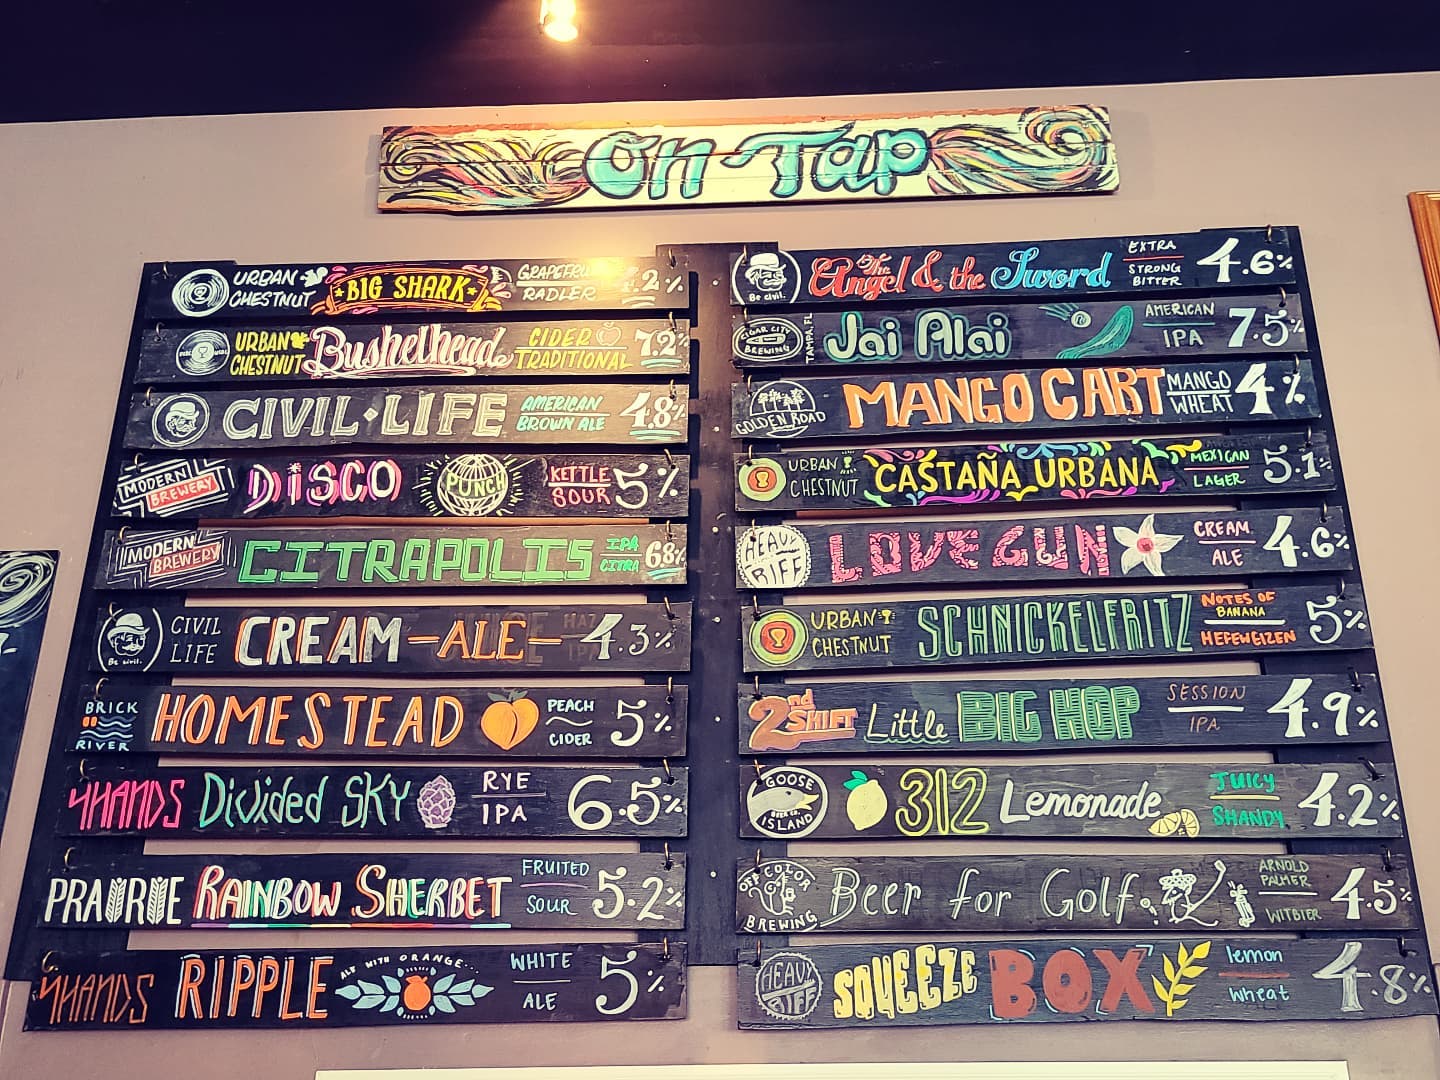 On-Tap
URBAN CHESTNUT BIG SHARK GRAPEFRUIT RADLER .2%
URBAN CHESTNUT Bushelhead CIDER TRADITIONAL 7.2%
CIVIL·LIFE AMERICAN BROWN ALE 4.8%
MODERN BREWERY DISCO PUNCH KETTLE SOUR 5%
MODERN BREWERY CITRAPOLIS IPA CITRA 6.8%
Be civil. CIVIL LIFE CREAM -ALE- 4.3%
BRICK RIVER HOMESTEAD PEACH CIDER 5%
4HANDS Divided SKY RYE IPA 6.5%
PRAIRIE RAINBOW SHERBET FRUITED SOUR 5.2%
4HANDS RIPPLE ALE WITH ORANGE... WHITE ALE 5%
Be civil. The Angel & the Sword EXTRA STRONG BITTER 4.6%
CIGAR CITY BREWING TAMPA, FL Jai Alai AMERICAN IPA 7.5%
GOLDEN ROAD MANGO CART MANGO WHEAT 4%
URBAN CHESTNUT CASTAÑA URBANA MEXICAN LAGER 5.1%
HEAVY RIFF LOVE GUN CREAM ALE 4.6%
URBAN CHESTNUT SCHNICKELFRITZ NOTES OF BANANA HEFEWEIZEN 5%
2nd SHIFT Little BIG HOP SESSION IPA 4.9%
GOOSE ISLAND BEER CO. 312 Lemonade JUICY SHANDY 4.2%
OFF COLOR BREWING Beer for Golf ARNOLD PALMER WITBIER 4.5%
HEAVY RIFF SQUEEZE BOX lemon wheat 4.8%